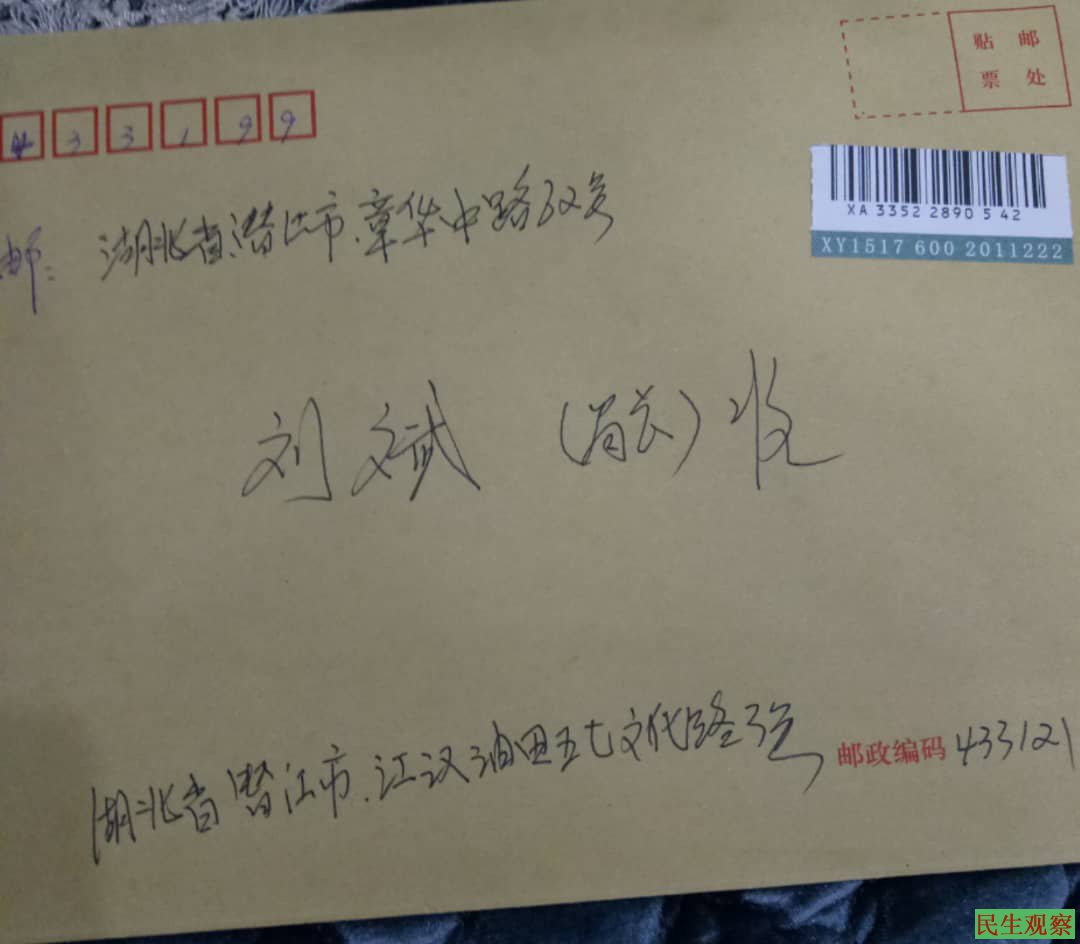 贴 邮
票 处
433199
XA 3352 2890 5 42
XY1517 600 2011222
邮: 湖北省、潜江市、章华中路32号
刘斌 (局长) 收
湖北省潜江市、江汉油田五七文化路3号
邮政编码 433121
民生观察